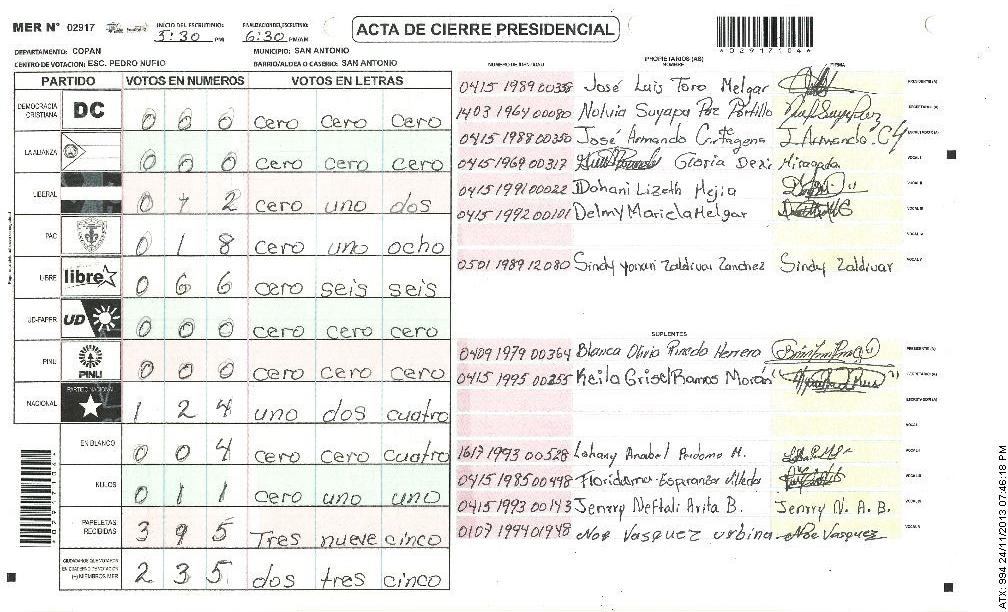 MER N° 02917
INICIO DEL ESCRUTINIO: 5:30 PM
FINALIZACION DEL ESCRUTINIO: 6:30 PM/AM
ACTA DE CIERRE PRESIDENCIAL
*02917104*
DEPARTAMENTO: COPAN
MUNICIPIO: SAN ANTONIO
CENTRO DE VOTACION: ESC. PEDRO NUFIO
BARRIO/ALDEA O CASERIO: SAN ANTONIO
PARTIDO VOTOS EN NUMEROS VOTOS EN LETRAS
DEMOCRACIA CRISTIANA DC 0 0 0 cero cero cero
LA ALIANZA 0 0 0 cero cero cero
LIBERAL 0 1 2 cero uno dos
PAC 0 1 8 cero uno ocho
LIBRE libre 0 6 6 cero seis seis
UD-FAPER UD 0 0 0 cero cero cero
PINU PINU 0 0 0 cero cero cero
NACIONAL PARTIDO NACIONAL 1 2 4 uno dos cuatro
EN BLANCO 0 0 4 cero cero cuatro
NULOS 0 1 1 cero uno uno
PAPELETAS RECIBIDAS 3 9 5 Tres nueve cinco
CIUDADANOS QUE VOTARON EN CUADERNO DE VOTACION (+) MIEMBROS MER 2 3 5 dos tres cinco
NUMERO DE IDENTIDAD PROPIETARIOS (AS) NOMBRE FIRMA
0415 1989 00358 José Luis Toro Melgar PRESIDENTE (A)
1403 1964 00080 Nolvia Suyapa Paz Portillo SECRETARIO (A)
0415 1988 00350 José Armando Cartagena J. Armando. C ESCRUTADOR (A)
0415 1969 00317 Gloria Dexi Miragada VOCAL I
0415 1991 00022 Dohani Lizeth Mejia VOCAL II
0415 1992 00101 Delmy Mariela Melgar VOCAL III
VOCAL IV
0501 1989 12080 Sindy yonari Zaldivar Sanchez Sindy Zaldivar VOCAL V
SUPLENTES
0409 1979 00364 Blanca Olivia Pineda Herrero PRESIDENTE (A)
0415 1995 00255 Keila Grisel Ramos Morán SECRETARIO (A)
ESCRUTADOR (A)
VOCAL I
1617 1993 00528 Lohany Anabel Perdomo M. VOCAL II
0415 1985 00498 Floridalma Esperanza Villeda
0415 1993 00143 Jenrry Neftali Arita B. Jenrry N. A. B.
0107 1994 01948 Noe Vasquez urbina Noe Vasquez VOCAL V
*02917104*
ATX: 994 24/11/2013 07:46:18 PM